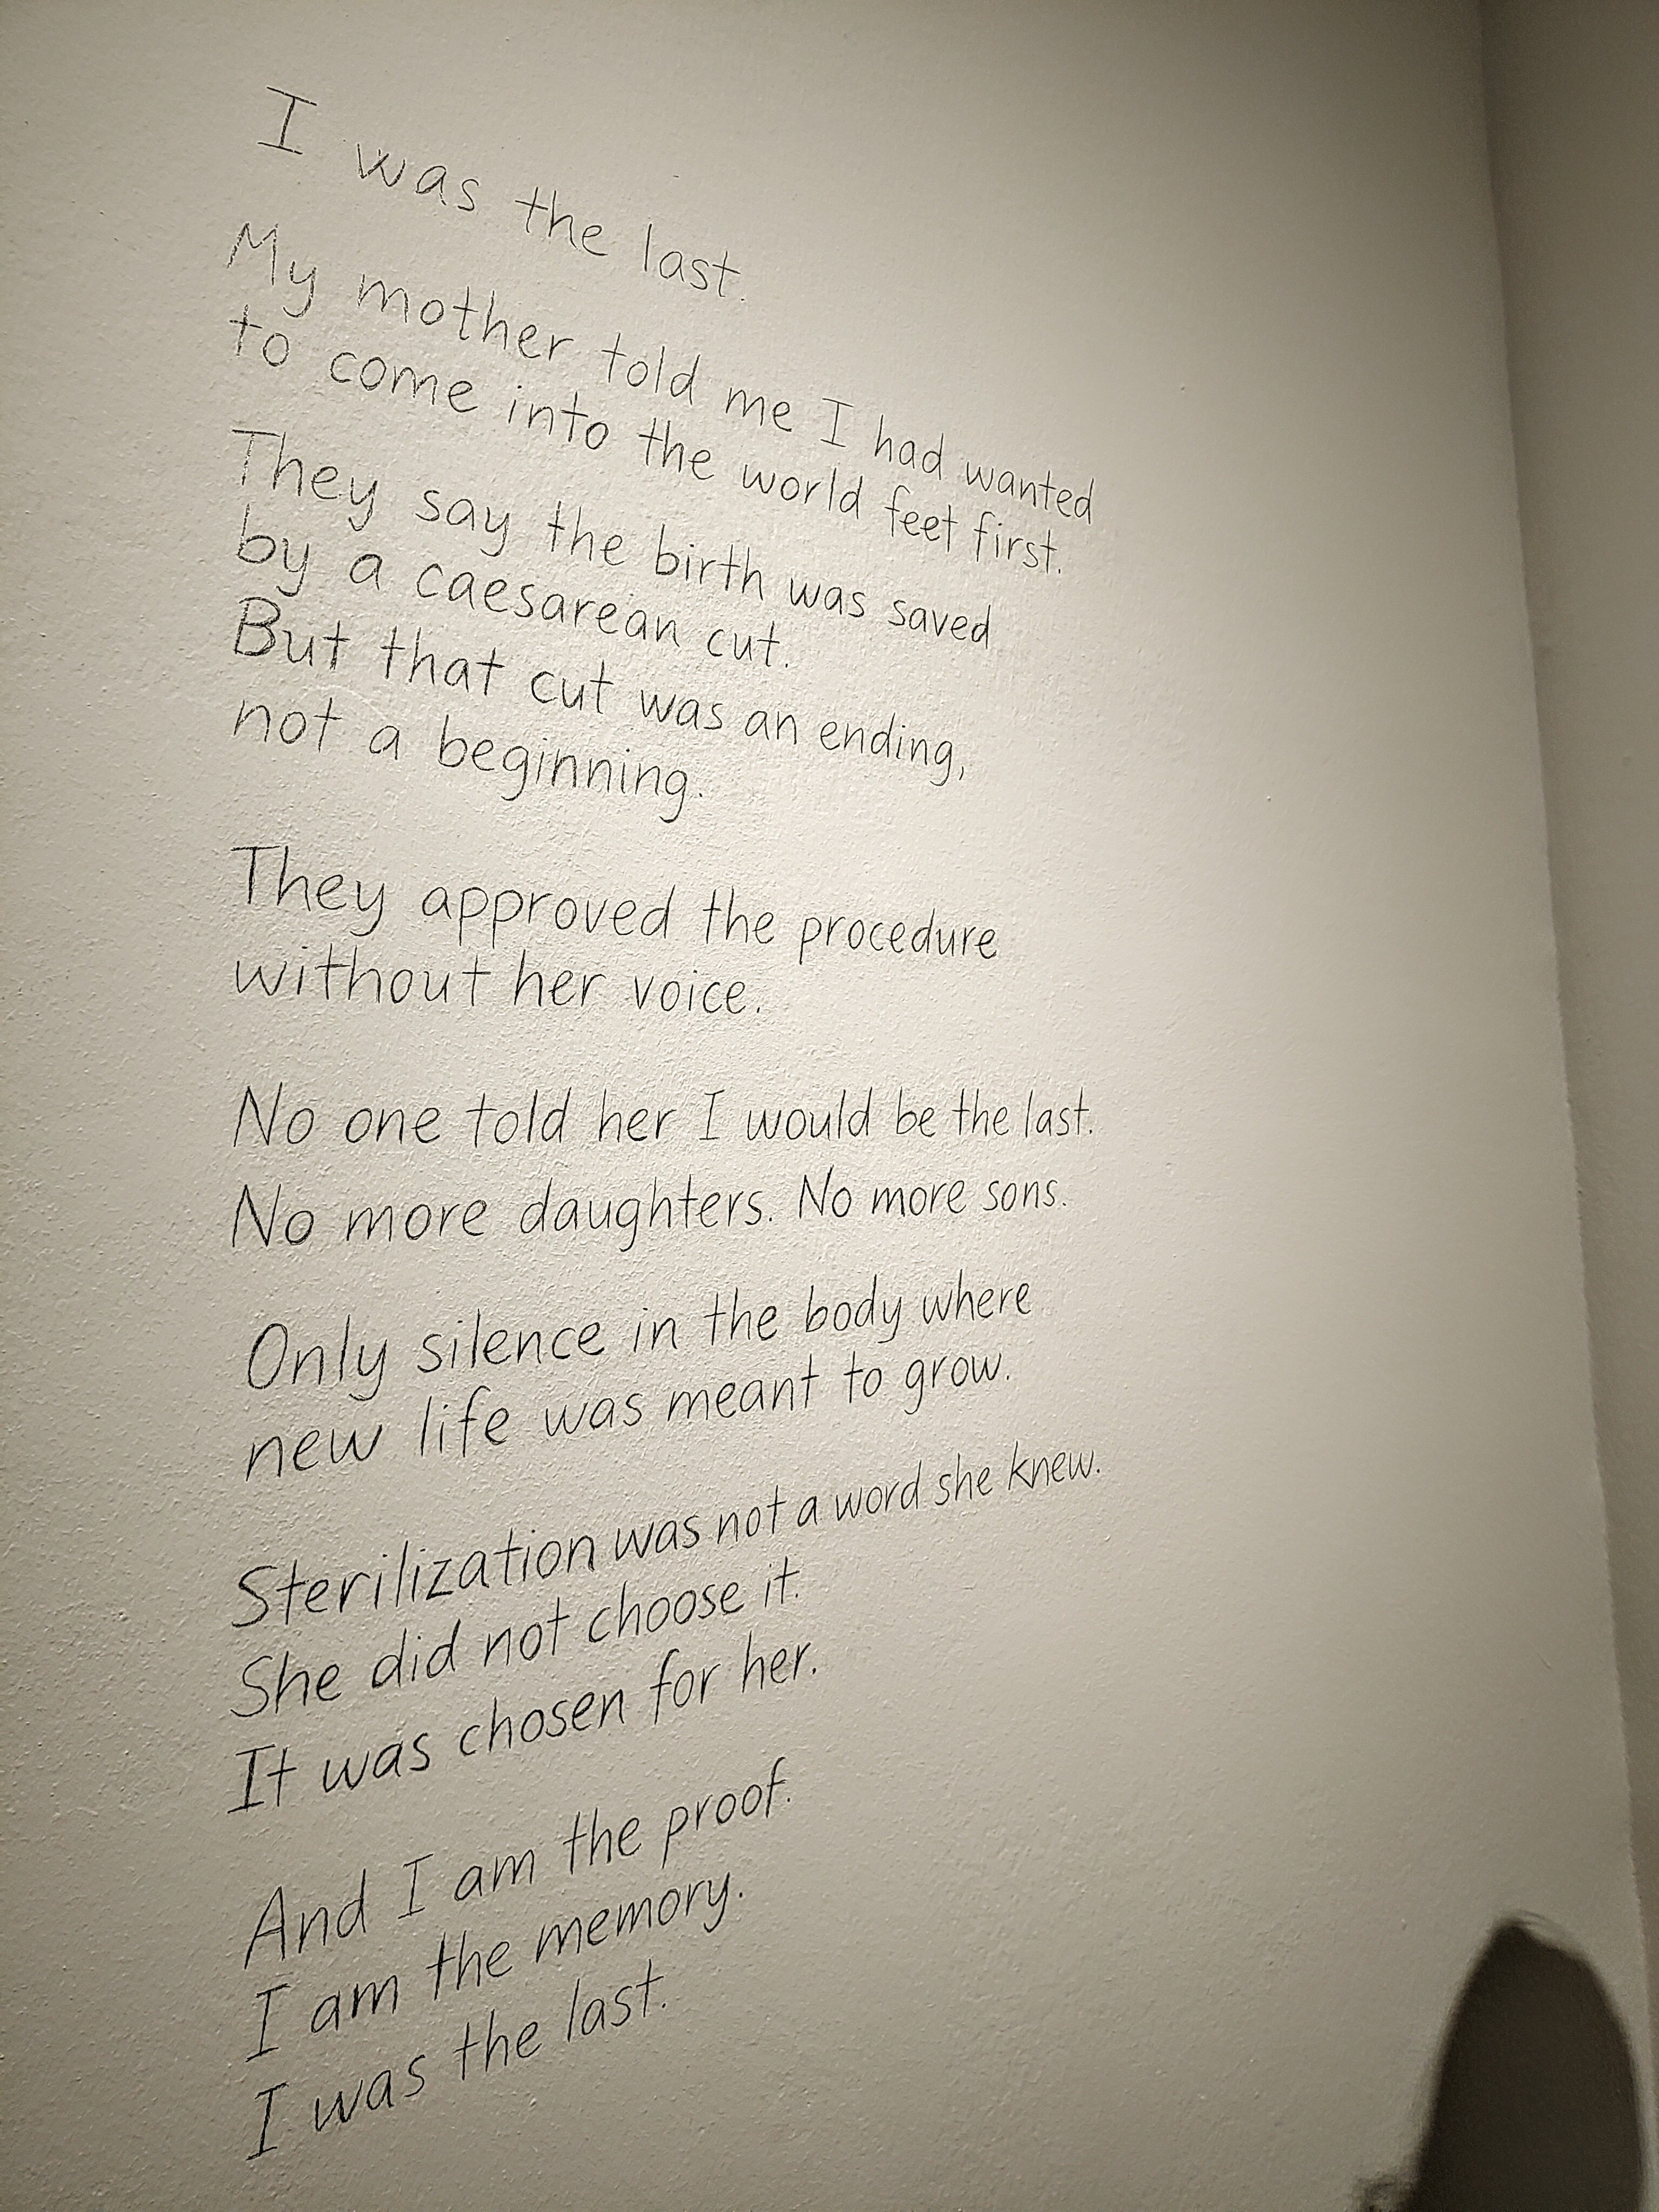 I was the last.
My mother told me I had wanted
to come into the world feet first.
They say the birth was saved
by a caesarean cut.
But that cut was an ending,
not a beginning.
They approved the procedure
without her voice.
No one told her I would be the last.
No more daughters. No more sons.
Only silence in the body where
new life was meant to grow.
Sterilization was not a word she knew.
She did not choose it.
It was chosen for her.
And I am the proof.
I am the memory.
I was the last.